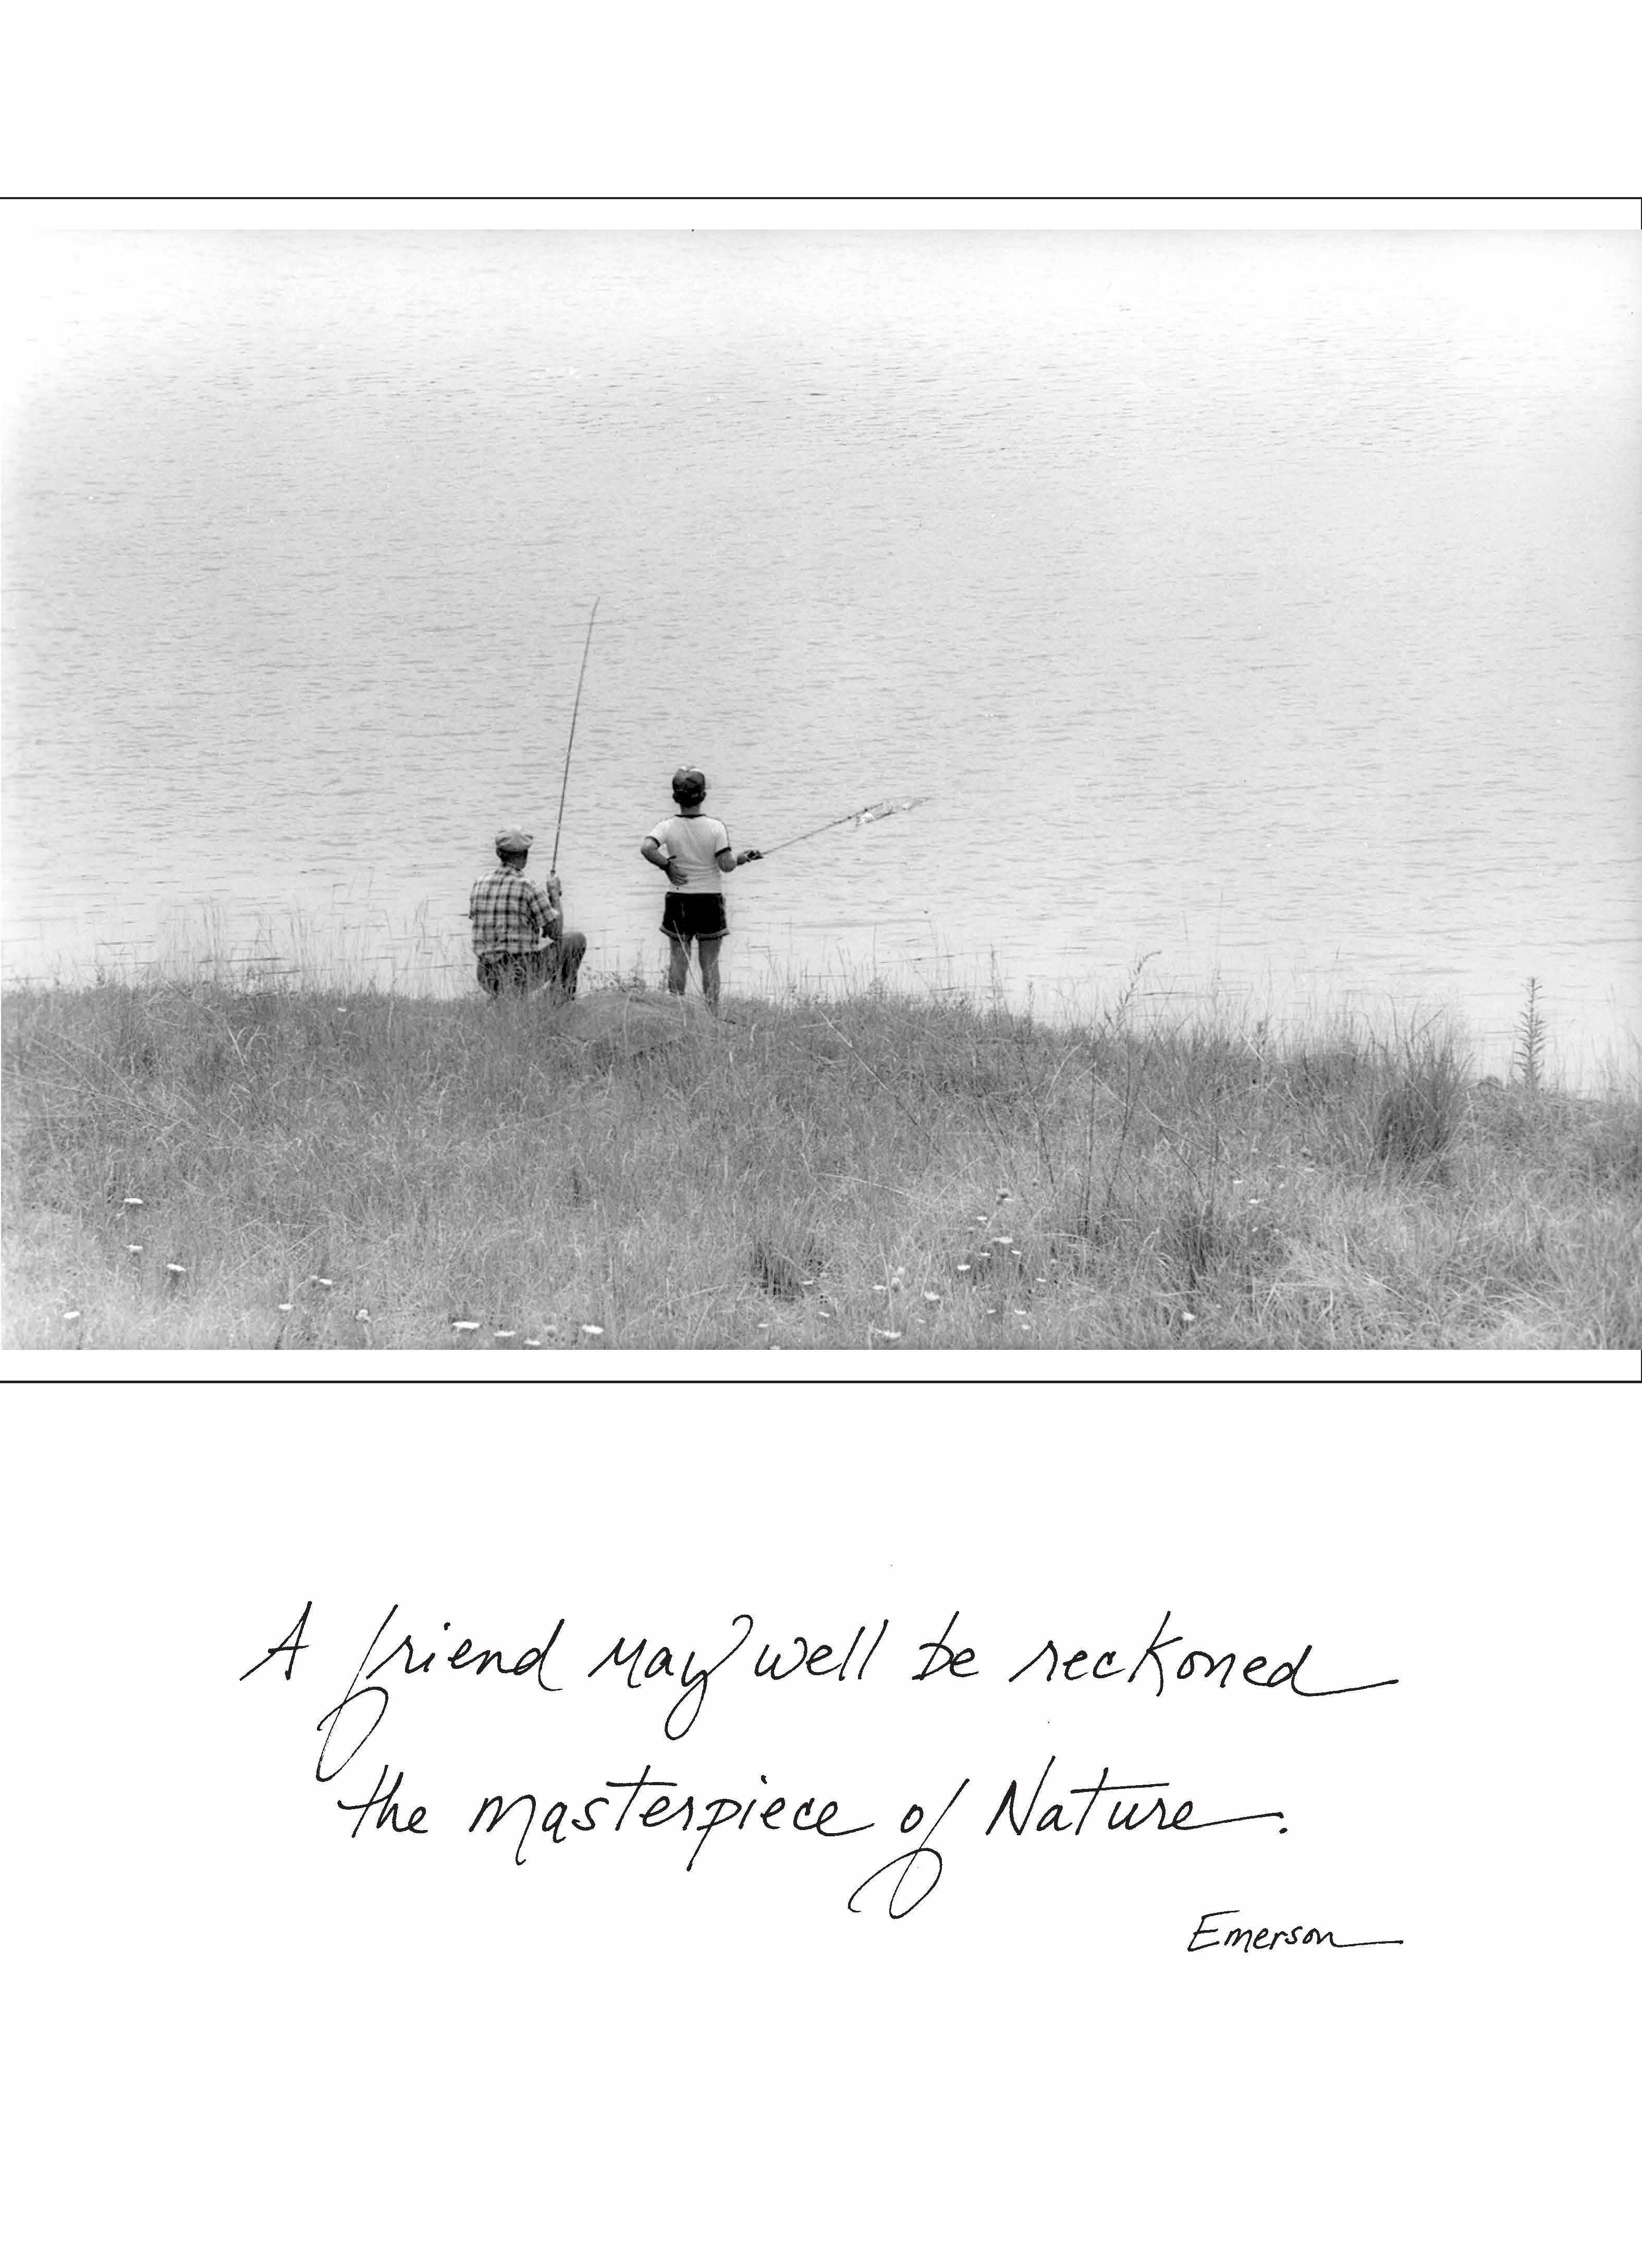 A friend may well be reckoned
the masterpiece of Nature.
Emerson